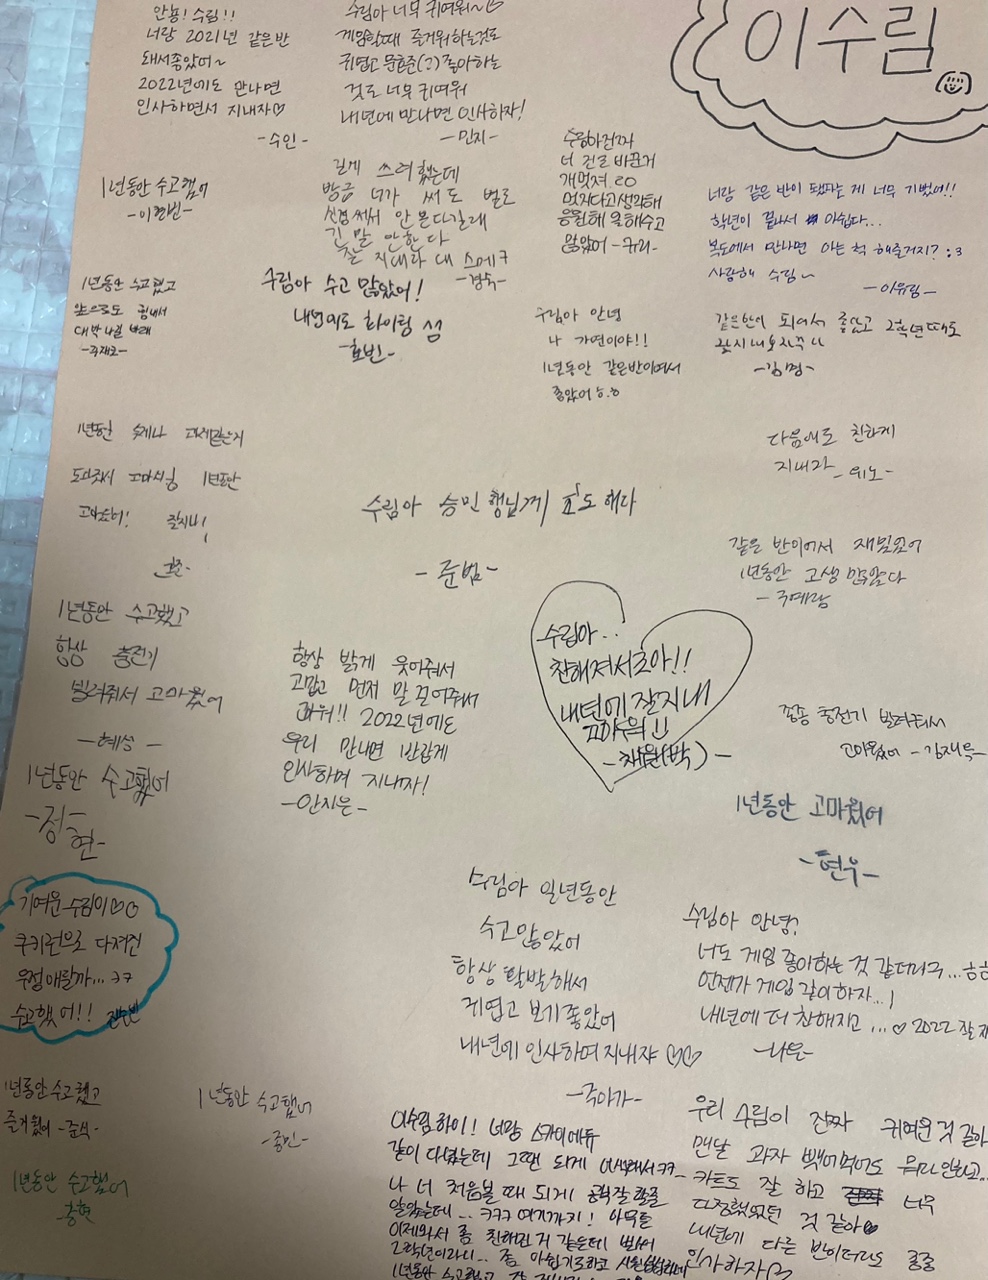 이수림
안뇽! 수림!!
너랑 2021년 같은반
돼서좋았어~
2022년에도 만나면
인사하면서 지내자♡
-수인-
수림아 너무 귀여워~♡
게임할때 즐거워하는것도
귀엽고 문효준(?) 좋아하는
것도 너무 귀여워
내년에 만나면 인사하자!
-민지-
1년동안 수고했어
-이한빈-
길게 쓰려했는데
방금 너가 써도 별로
신경써서 안 본다길래
긴 말 안한다
잘 지내라 내
수림아진짜
너 진로바꾼거
개멋져.ㄹㅇ
멋지다고생각해
응원해 올해수고
많았어 -규리-
너랑 같은 반이 됐다는 게 너무 기뻤어!!
학년이 끝나서 아쉽다...
복도에서 만나면 아는 척 해줄거지? :3
사랑해 수림~
-이유림-
1년동안 수고했고
앞으로도 힘내서
대박나길 바래
수림아 수고 많았어!
내년에도 화이팅
-효빈-
수림아 안녕
나 가연이야!!
1년동안 같은반이여서
좋았어ㅎ.ㅎ
같은반이 되어서 좋았고 2학년때도
다음에도 친하게
지내자
1년동안
도와줘서 1년동안
고마웠어! 잘지내!
수림아 승민 형님께 효도 해라
-준범-
같은 반이어서 재밌었어
1년동안 고생 많았다
-주예람
1년동안 수고했고
항상 충전기
빌려줘서 고마웠어
-혜성-
항상 밝게 웃어줘서
고맙고 먼저 말 걸어줘서
고마워!! 2022년에도
우리 만나면 반갑게
인사하며 지내자!
-안지은-
수림아..
친해져서조아!!
내년에 잘지내
고마워
-채원(박)-
종종 충전기 빌려줘서
고마웠어 -김재욱-
1년동안 수고했어
-정현-
1년동안 고마웠어
-현우-
기여운 수림이♡♡
쿠키런으로 다져진
우정이랄까...ㅋㅋ
수고했어!!
수림아 일년동안
수고많았어
항상 활발해서
귀엽고 보기좋았어
내년에 인사하며 지내쟈 ♡♡
수림아 안녕?
너도 게임 좋아하는 것 같더라구...ㅎㅎ
언젠가 게임 같이하자...!
내년에 더 친해지고 ...♡ 2022 잘
-나은-
1년동안 수고했고
즐거웠어 -준석-
1년동안 수고했어
-종민-
1년동안 수고했어
홍현
이수림 하이! 너랑 스카이에듀
같이 다녔는데 그땐 되게 어색해서ㅋㅋ
나 너 처음볼 때 되게
알았는데... ㅋㅋㅋ 여기까지! 아무튼
이제와서 좀 친해진 거 같은데 벌써
2학년이라니.. 좀 아쉽기도하고
1년동안 수고했고
우리 수림이 진짜 귀여운것 같아
맨날 과자 뺏어먹어도 뭐라 안하고..
카트도 잘 하고 너무
다정했었던 것 같아♡
내년에 다른 반이더라도 종종
인사하자♡